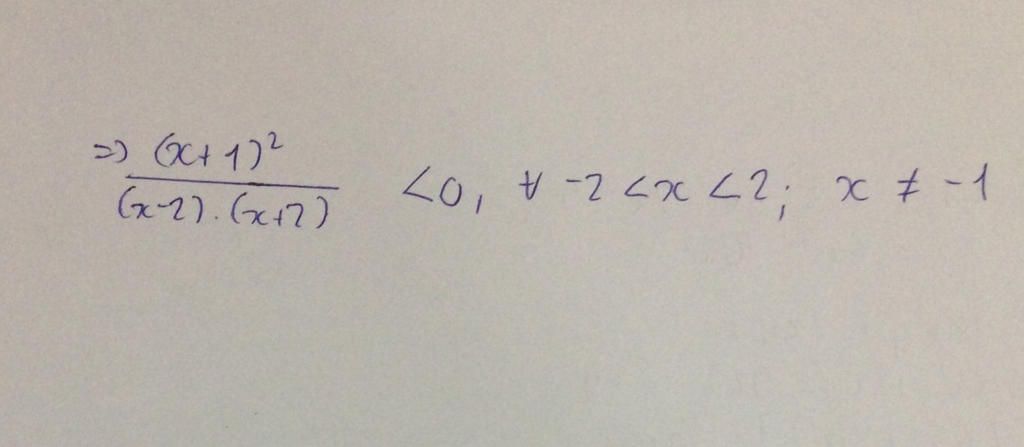 => (x+1)²/((x-2).(x+2)) <0, ∀ -2 <x <2; x ≠ -1